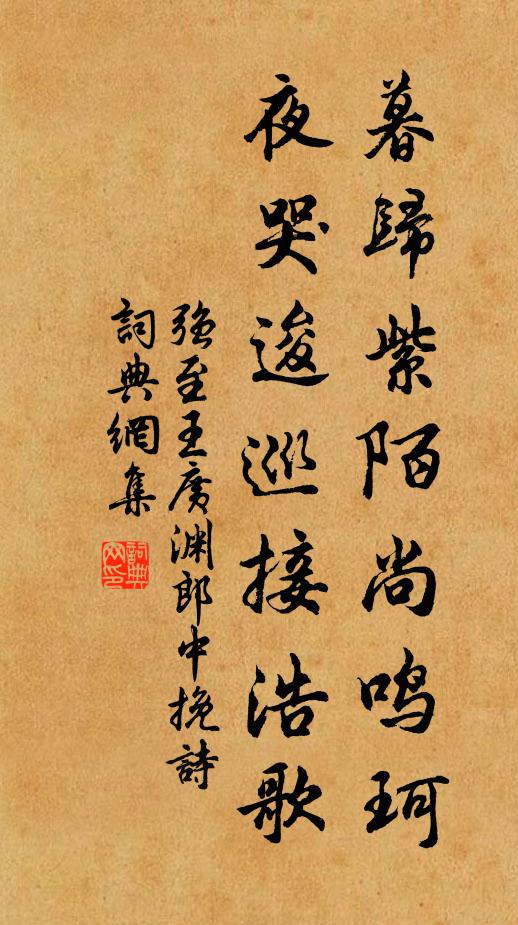 暮歸紫陌尚鳴珂
夜哭逡巡接浩歌
强至王廣淵郎中挽詩
詞典網集
詞典網印